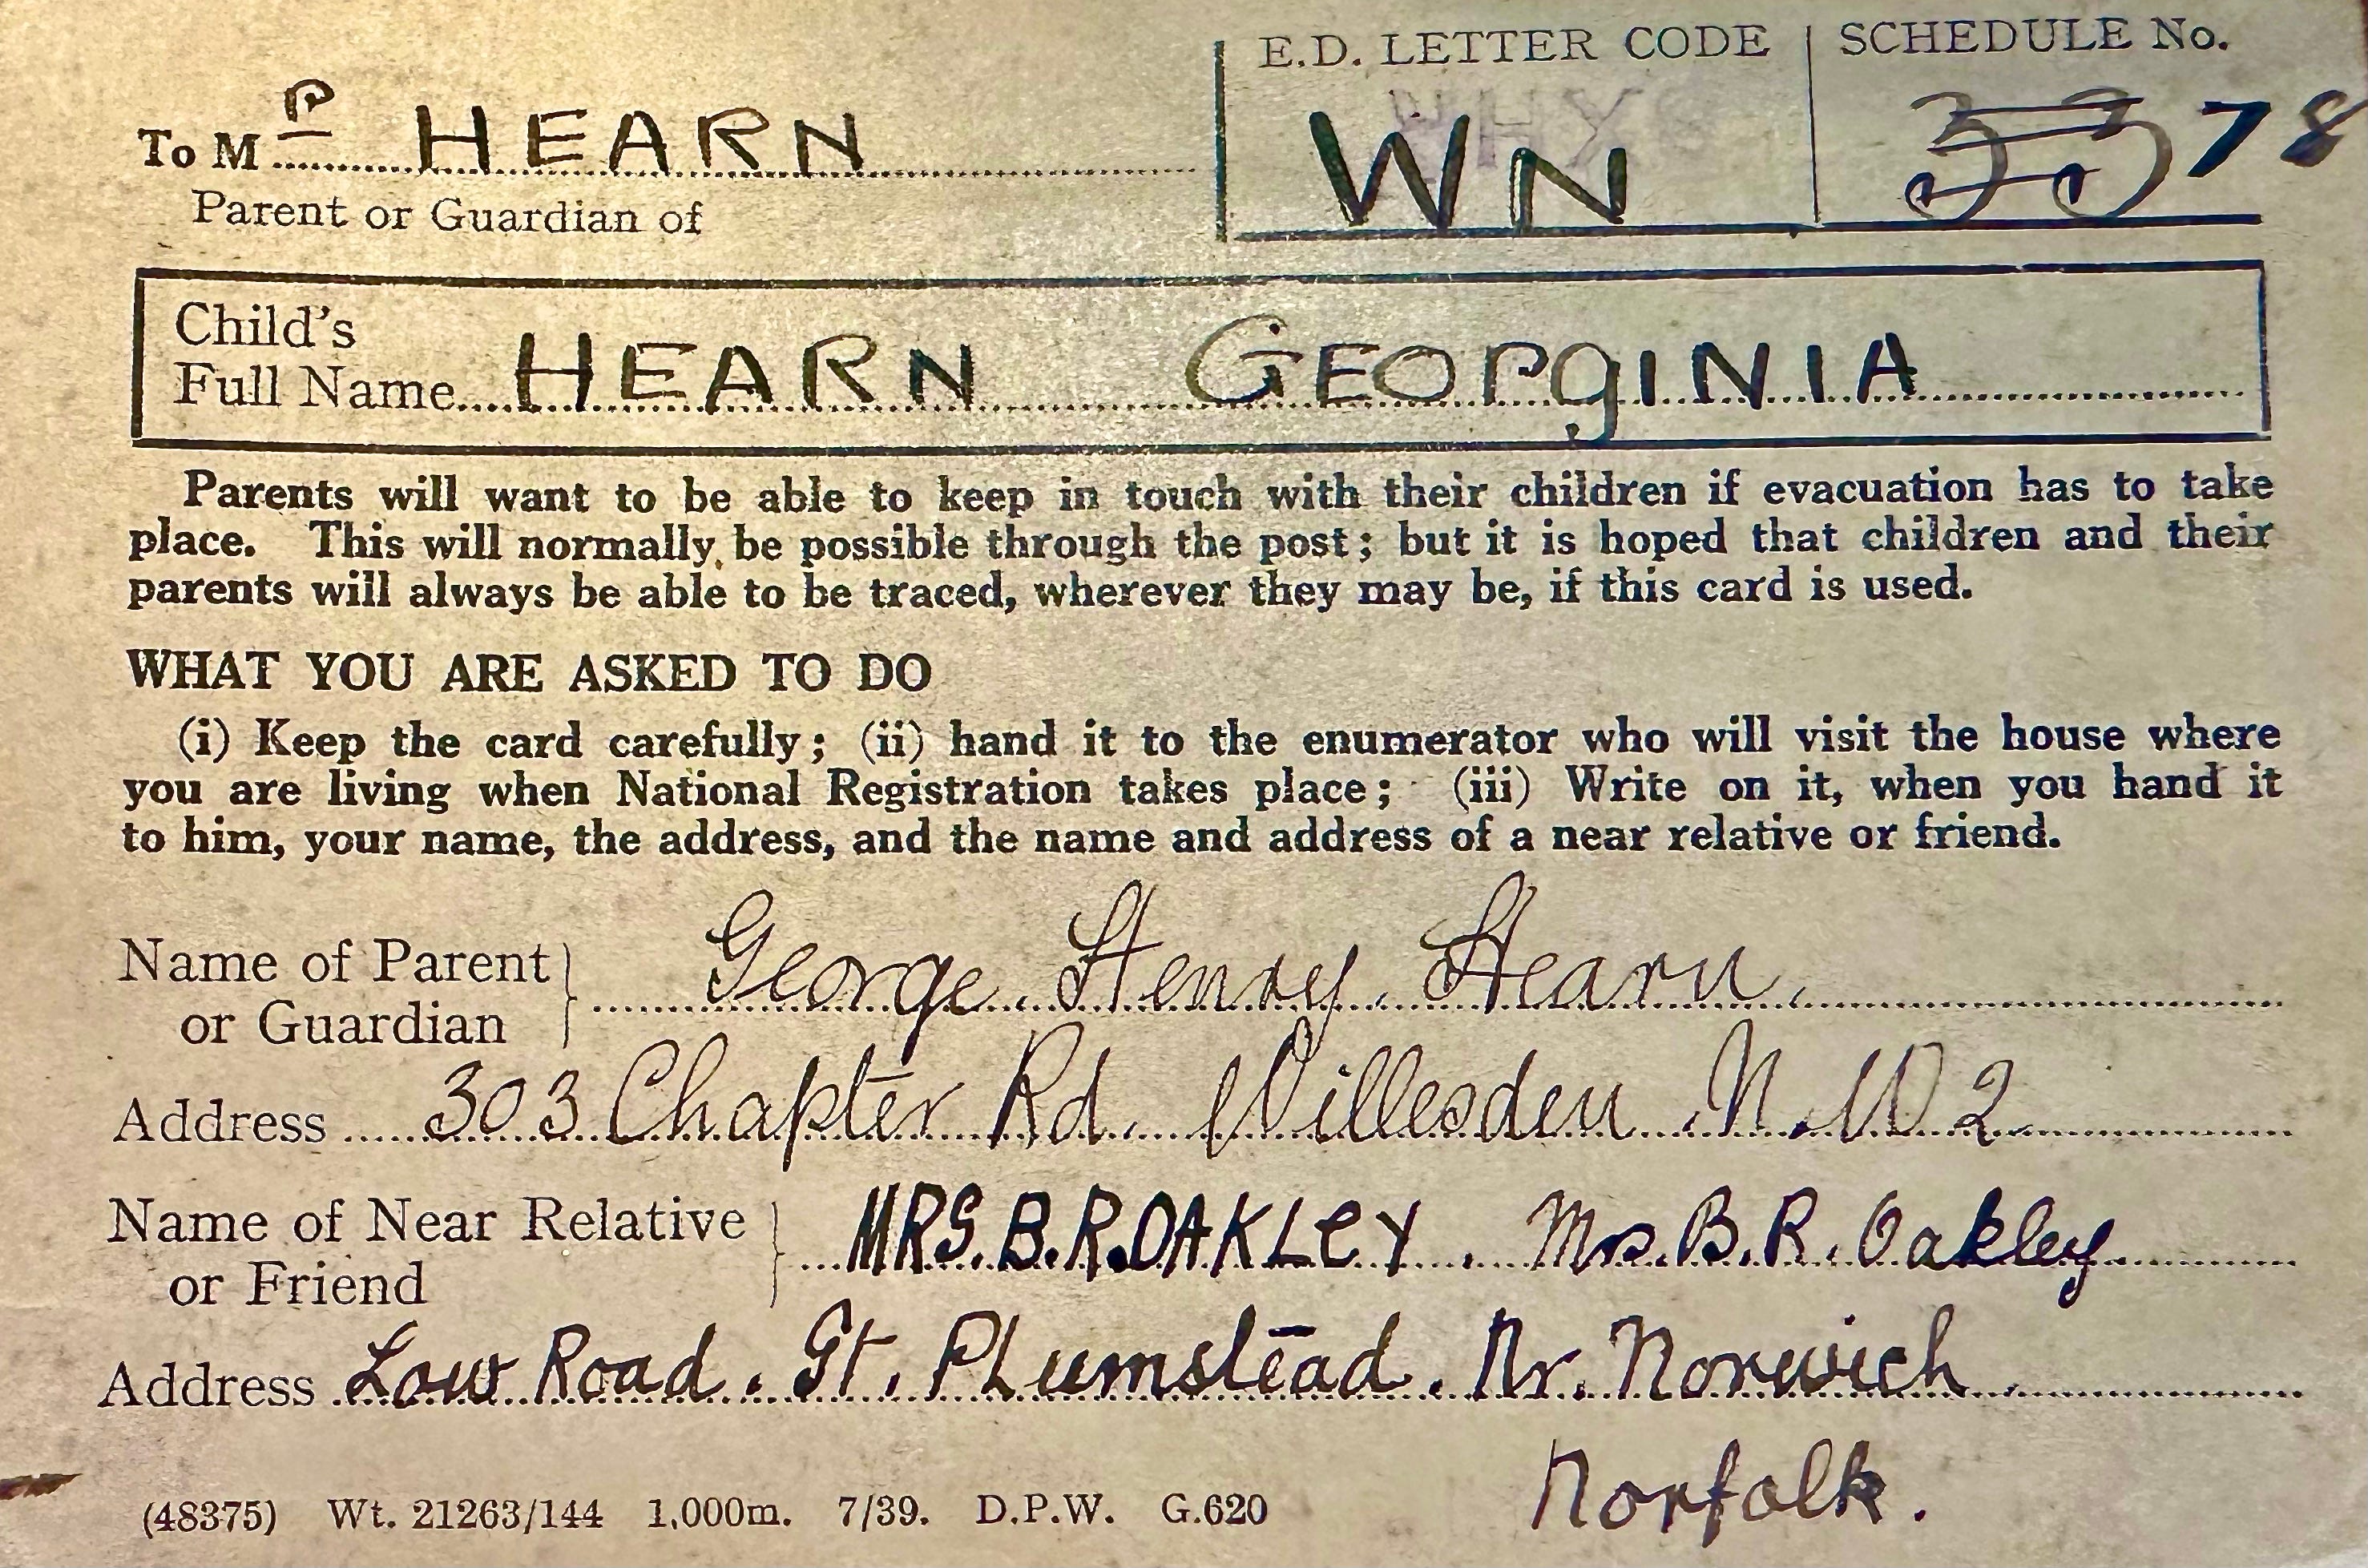 E.D. LETTER CODE SCHEDULE No.
To M R HEARN WN 33 78
Parent or Guardian of
Child's
Full Name HEARN GEORGINIA
Parents will want to be able to keep in touch with their children if evacuation has to take
place. This will normally be possible through the post; but it is hoped that children and their
parents will always be able to be traced, wherever they may be, if this card is used.
WHAT YOU ARE ASKED TO DO
(i) Keep the card carefully; (ii) hand it to the enumerator who will visit the house where
you are living when National Registration takes place; (iii) Write on it, when you hand it
to him, your name, the address, and the name and address of a near relative or friend.
Name of Parent
or Guardian George Henry Hearn
Address 303 Chapter Rd. Willesden N.W.2
Name of Near Relative
or Friend MRS.B.R.OAKLEY. Mrs.B.R.Oakley
Address Low Road. Gt. Plumstead. Nr. Norwich
Norfolk.
(48375) Wt. 21263/144 1,000m. 7/39. D.P.W. G.620